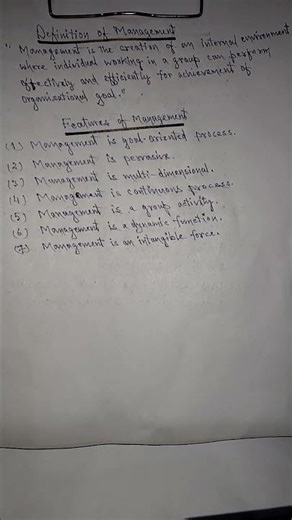 Definition of Management
"Management is the creation of an internal environment
where individual working in a group can perform
effectively and efficiently for achievement of
organisational goal."
Features of Management
(1) Management is goal-oriented process.
(2) Management is pervasive.
(3) Management is multi-dimensional.
(4) Management is continuous process.
(5) Management is a group activity.
(6) Management is a dynamic function.
(7) Management is an intangible force.